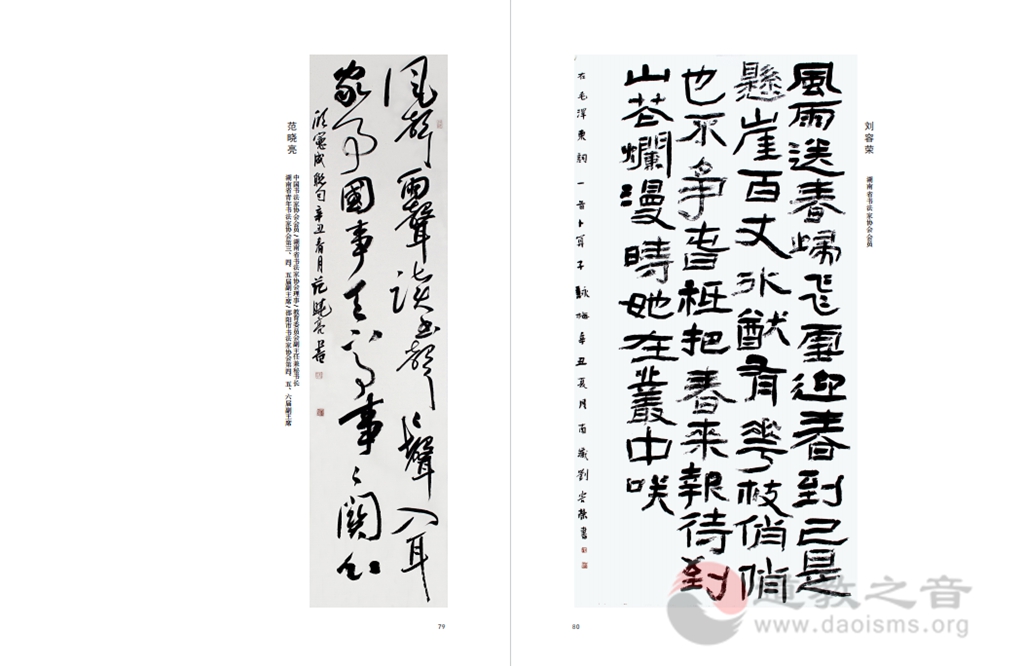 范晓亮
中国书法家协会会员/湖南省书法家协会理事/教育委员会副主任兼秘书长
湖南省青年书法家协会第三、四、五届副主席/邵阳市书法家协会第四、五、六届副主席
風聲雨聲读书聲〻聲入耳
家事國事天下事事〻關心
顾憲成联句辛丑春月范晓亮書
79
刘容荣
湖南省书法家协会会员
風雨送春歸飞雪迎春到已是
懸崖百丈冰猷有花枝俏俏
也不爭春祗把春来報待到
山花爛漫時她在叢中咲
右毛澤東詞一首卜算子詠梅辛丑夏月南嶽劉容榮書
80
道教之音
www.daoisms.org